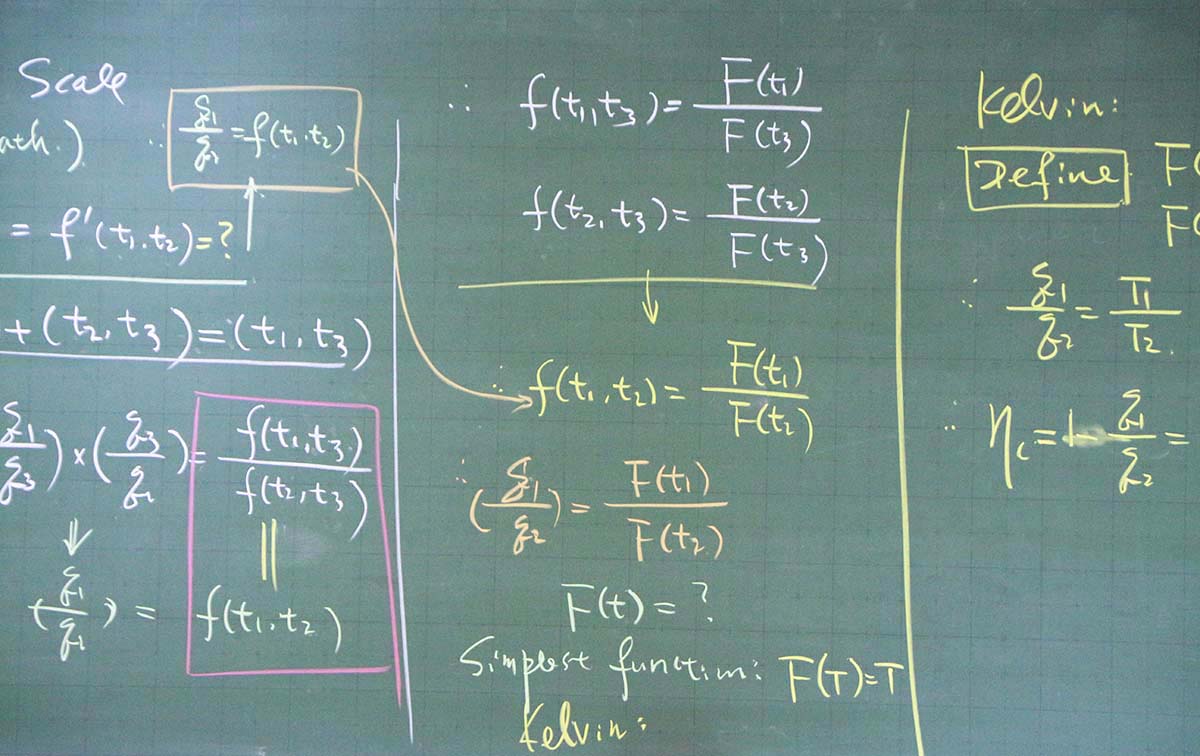 Scale
ath.) ∵ q1/q2 = f(t1, t2)
= f'(t1, t2) = ?
+ (t2, t3) = (t1, t3)
q1/q3) × (q3/q2) = f(t1, t3)/f(t2, t3)
⇓ ||
(q1/q2) = f(t1, t2)
∴ f(t1, t3) = F(t1)/F(t3)
f(t2, t3) = F(t2)/F(t3)
↓
∴ f(t1, t2) = F(t1)/F(t2)
∴ (q1/q2) = F(t1)/F(t2)
F(t) = ?
Simplest function: F(T) = T
Kelvin:
Kelvin:
Define F(
F(
∴ q1/q2 = T1/T2
∴ ηc = 1 - q1/q2 =